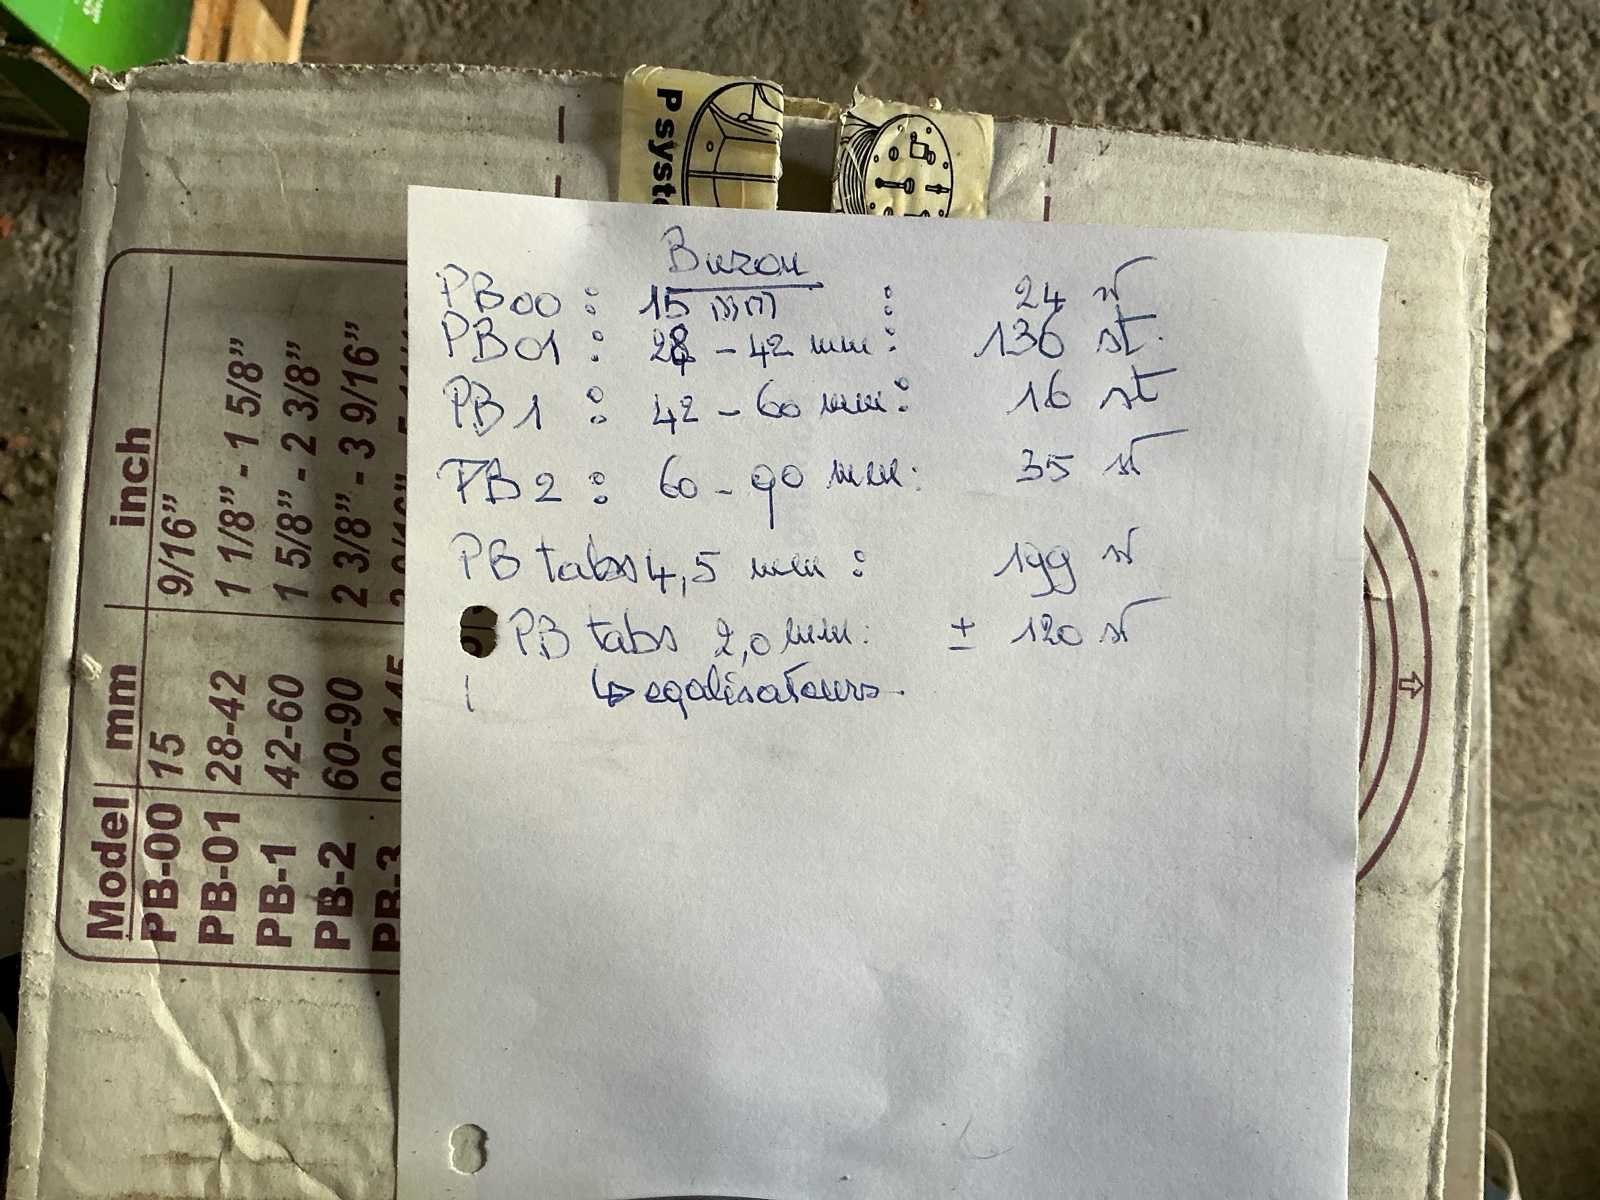 Psyst
Buzon
PB00 : 15 mm : 24 st
PB01 : 28 - 42 mm : 136 st.
PB1 : 42 - 60 mm : 16 st
PB2 : 60 - 90 mm : 35 st
PB tabs 4,5 mm : 199 st
PB tabs 2,0 mm : ± 120 st
↳ egalisateurs
Model mm inch
PB-00 15 9/16”
PB-01 28-42 1 1/8” - 1 5/8”
PB-1 42-60 1 5/8” - 2 3/8”
PB-2 60-90 2 3/8” - 3 9/16”
PB-3 90-145